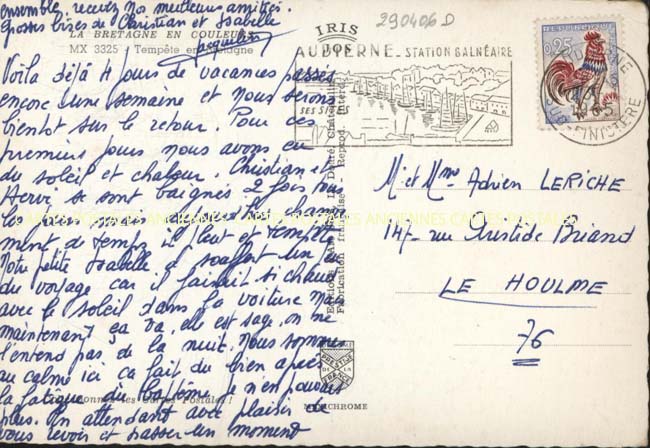 ensemble, recevez nos meilleurs amitiés.
Grosses bises de Christian et Isabelle
Jacqueline
LA BRETAGNE EN COULEURS
MX 3325 / Tempête en Bretagne
Voilà déjà 4 jours de vacances passés
encore une semaine et nous serons
bientôt sur le retour. Pour ces
premiers jours nous avons eu
du soleil et chaleur. Christian et
Hervé se sont baignés 2 fois tous
les jours mais aujourd'hui change
ment de temps il pleut et tempête
Notre petite Isabelle a souffert un peu
du voyage car il faisait si chaud
avec le soleil dans la voiture mais
maintenant ça va, elle est sage, on ne
l'entend pas de la nuit. Nous sommes
au calme ici ça fait du bien après
la fatigue du baptême je n'en pouvais
plus. En attendant avec plaisir de
vous revoir et passer un moment
IRIS
290406D
AUDIERNE - STATION BALNÉAIRE
SES
0,25
FINISTERE
Mr et Mme Adrien LERICHE
147 - rue Aristide Briand
LE HOULME
76
Reprod. interdite
Fabrication française
PRESTIGE
DE LA
FRANCE
MEXICHROME
Cartes Postales !
CARTES POSTALES ANCIENNES CARTES POSTALES